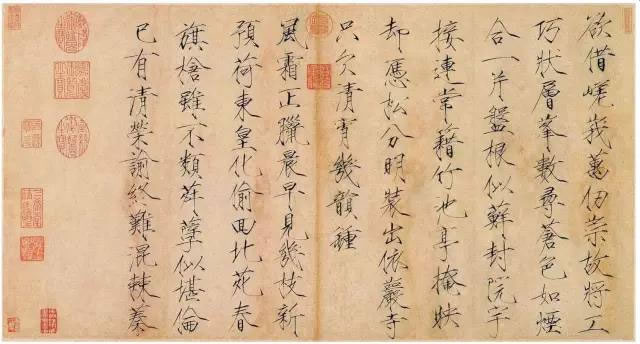 欲借嵯峨萬仞崇故將工
巧狀層峯數尋蒼色如煙
合一片盤根似蘚封院宇
接連常藉竹池亭掩映
却憑松分明裝出依巖寺
只欠清宵幾韻種
風霜正臘晨早見幾枝新
預荷東皇化偷回北苑春
旗槍雖不類荈孽似堪倫
已有清榮諭終難混棘蓁